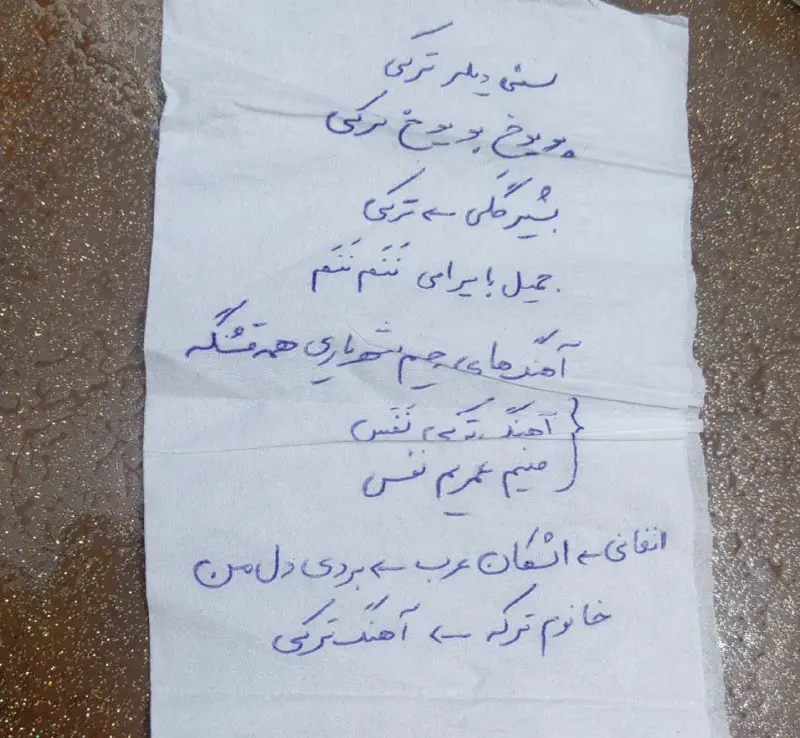 سنی دیلر ترکی
بویوخ بویوخ ترکی
بشیر گلی ← ترکی
جمیل بایرامی نَنَم نَنَم
آهنگهای رحیم شهریاری همه قشنگه
آهنگ ترکی نَفَس
منیم عمریم نفس
افغانی ← اشکان عرب ← بردی دل من
خانوم ترکه ← آهنگ ترکی